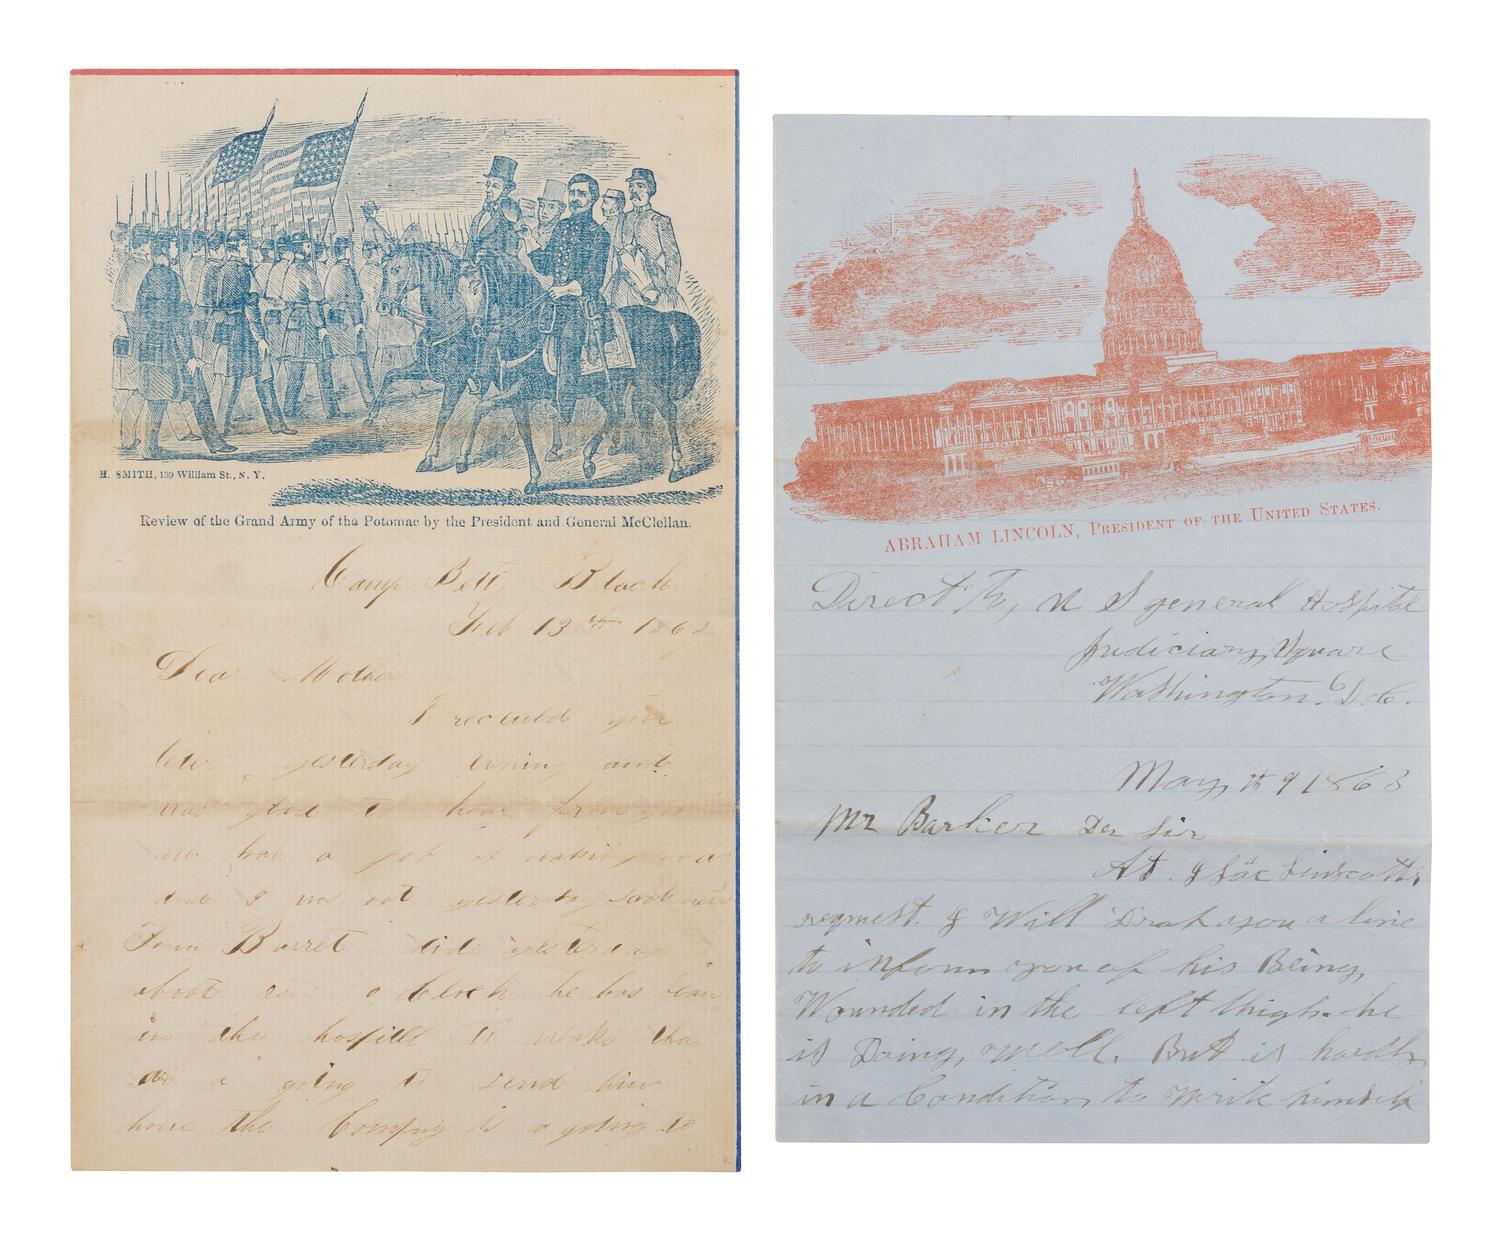 H. SMITH, 139 William St., N. Y.
Review of the Grand Army of the Potomac by the President and General McClellan.
Camp Betty Black
Feb 13th 1862
Dear Mother
I receuld your
leter yesterday evining and
was glad to hear from you
we hav a job of making
and I was out yesterday
Barret did yesterday
about ten o clock he has bean
in the hospitle weaks tha
ar a going to send him
home the Company is a going to
ABRAHAM LINCOLN, President of the United States.
Direct To, U S general Hospital
Judiciary Square
Washington. D. C.
May th 9 1863
Mr Barker Der Sir
At Isac Linscotts
request. I Will Drop you a line
to inform you of his Being,
Wounded in the left thigh. he
is Doing, well. But is hardly
in a Condition to Write himself